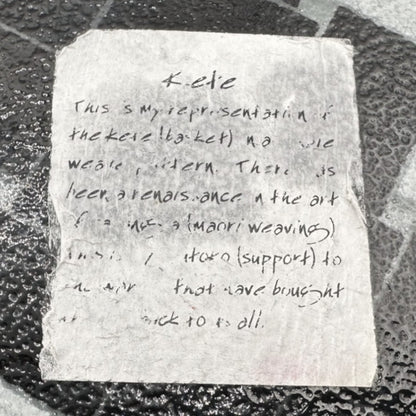 Kete
This is my representation of
the kete (basket) in a
weave pattern. There has
been a renaissance in the art
(maori weaving)
(support) to
that have bought
back to us all.